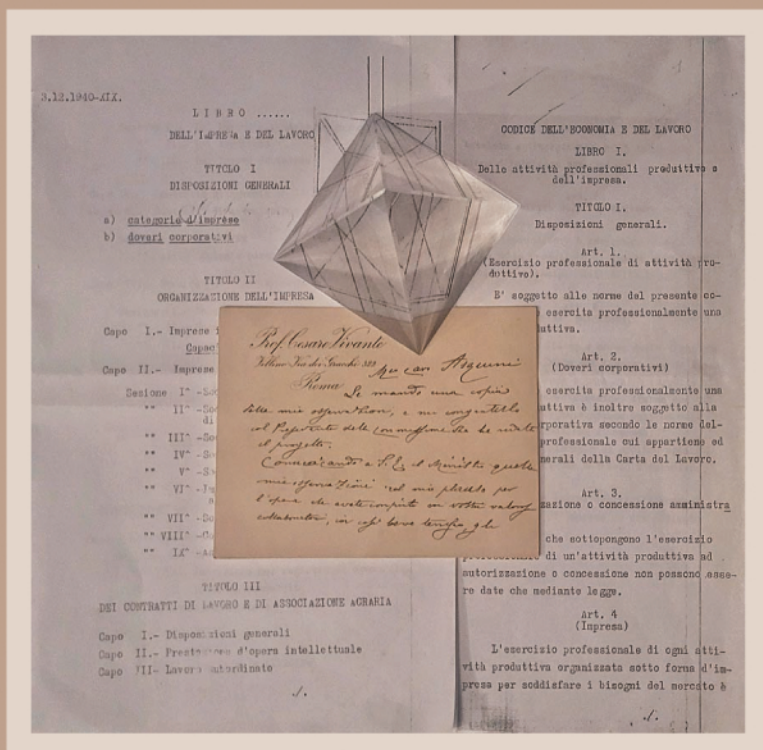 3.12.1940-XIX.
LIBRO ......
DELL'IMPRESA E DEL LAVORO
TITOLO I
DISPOSIZIONI GENERALI
a) categorie d'imprese
b) doveri corporativi
TITOLO II
ORGANIZZAZIONE DELL'IMPRESA
Capo I.- Imprese
Capo II.- Imprese
Sezione I^
"" II^
"" III^
"" IV^
"" V^
"" VI^
"" VII^
"" VIII^
"" IX^
TITOLO III
DEI CONTRATTI DI LAVORO E DI ASSOCIAZIONE AGRARIA
Capo I.- Disposizioni generali
Capo II.- Prestazione d'opera intellettuale
Capo III- Lavoro subordinato
./.
Prof. Cesare Vivante
Roma
Mio caro Asquini
Le mando una copia
delle mie osservazioni, e mi congratulo
col Presidente della Commissione che ha redatto
il progetto.
Comunicando a S. E. il Ministro queste
mie osservazioni
l'opera
CODICE DELL'ECONOMIA E DEL LAVORO
LIBRO I.
Delle attività professionali produttive e
dell'impresa.
TITOLO I.
Disposizioni generali.
Art. 1.
(Esercizio professionale di attività pro-
duttive).
E' soggetto alle norme del presente co-
esercita professionalmente una
attiva.
Art. 2.
(Doveri corporativi)
esercita professionalmente una
attiva è inoltre soggetto alla
rporativa secondo le norme del-
professionale cui appartiene ed
nerali della Carta del Lavoro.
Art. 3.
zazione o concessione amministra
che sottopongono l'esercizio
di un'attività produttiva ad
autorizzazione o concessione non possono esse-
re date che mediante legge.
Art. 4
(Impresa)
L'esercizio professionale di ogni atti-
vità produttiva organizzata sotto forma d'im-
presa per soddisfare i bisogni del mercato è
./.